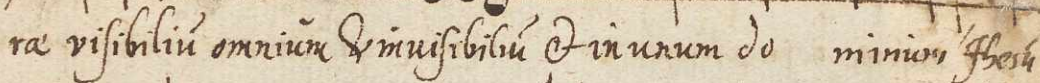 ræ visibiliū omnium & invisibiliū & in unum do minum Jhesū